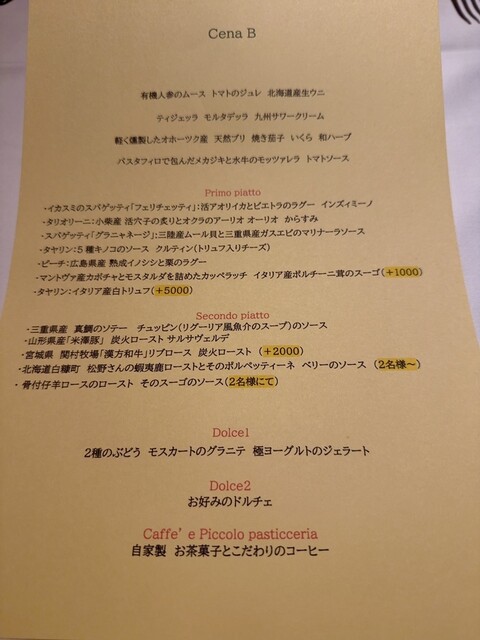 Cena B
有機人参のムース トマトのジュレ 北海道産生ウニ
ティジェッラ モルタデッラ 九州サワークリーム
軽く燻製したオホーツク産 天然ブリ 焼き茄子 いくら 和ハーブ
パスタフィロで包んだメカジキと水牛のモッツァレラ トマトソース
Primo piatto
・イカスミのスパゲッティ「フェリチェッティ」：活アオリイカとビエトラのラグー インズィミーノ
・タリオリーニ：小柴産 活穴子の炙りとオクラのアーリオ オーリオ からすみ
・スパゲッティ「グラニャネージ」：三陸産ムール貝と三重県産ガスエビのマリナーラソース
・タヤリン：５種キノコのソース クルティン(トリュフ入りチーズ)
・ピーチ：広島県産 熟成イノシシと栗のラグー
・マントヴァ産カボチャとモスタルダを詰めたカッペラッチ イタリア産ポルチーニ茸のスーゴ(＋1000)
・タヤリン：イタリア産白トリュフ(＋5000)
Secondo piatto
・三重県産 真鯛のソテー チュッピン(リグーリア風魚介のスープ)のソース
・山形県産「米澤豚」 炭火ロースト サルサヴェルデ
・宮城県 関村牧場「漢方和牛」リブロース 炭火ロースト (＋2000)
・北海道白糠町 松野さんの蝦夷鹿ローストとそのポルペッティーネ ベリーのソース (2名様～)
・骨付仔羊ロースのロースト そのスーゴのソース(2名様にて)
Dolce1
2種のぶどう モスカートのグラニテ 極ヨーグルトのジェラート
Dolce2
お好みのドルチェ
Caffe' e Piccolo pasticceria
自家製 お茶菓子とこだわりのコーヒー